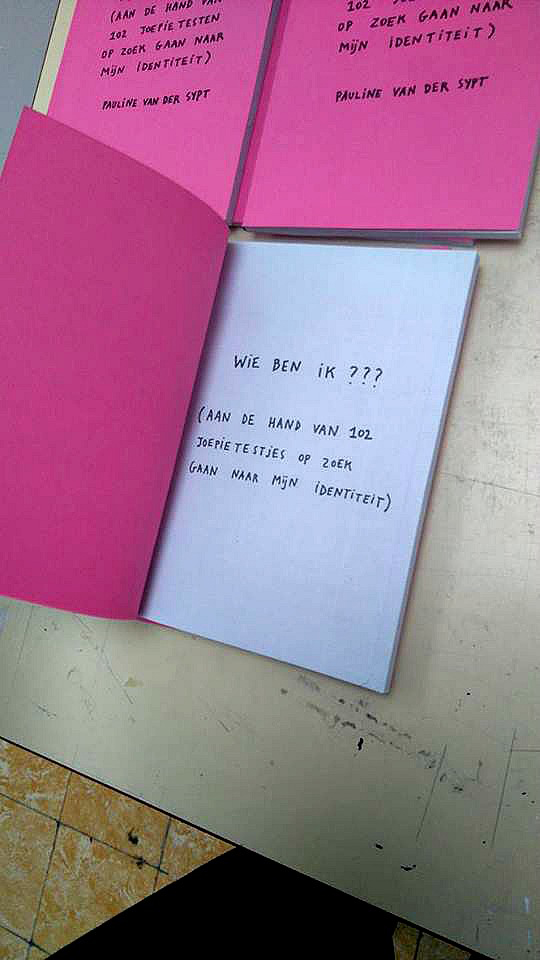 (AAN DE HAND VAN
102 JOEPIETESTEN
OP ZOEK GAAN NAAR
MIJN IDENTITEIT)
PAULINE VAN DER SYPT
102
OP ZOEK GAAN NAAR
MIJN IDENTITEIT)
PAULINE VAN DER SYPT
WIE BEN IK ???
(AAN DE HAND VAN 102
JOEPIETESTJES OP ZOEK
GAAN NAAR MIJN IDENTITEIT)